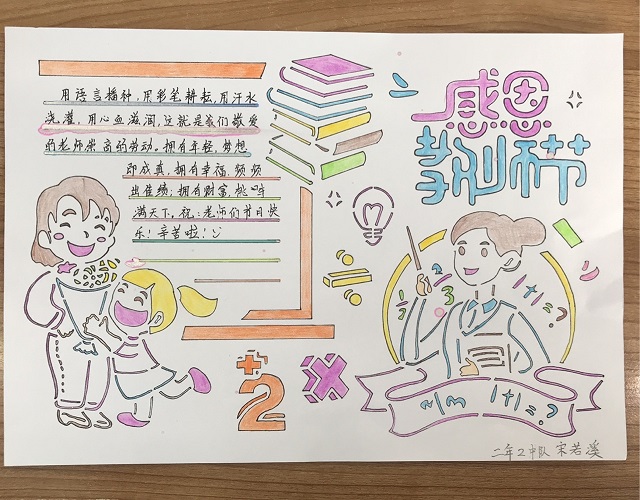 感恩
教师节
用语言播种，用彩笔耕耘，用汗水
浇灌，用心血滋润，这就是我们敬爱
的老师崇高的劳动。拥有年轻，梦想
即成真，拥有幸福，频频
出佳绩；拥有财富，桃李
满天下。祝：老师们节日快
乐！辛苦啦！
1+1=?
3
÷
+
2
×
1+1=?
二年2中队 宋若溪